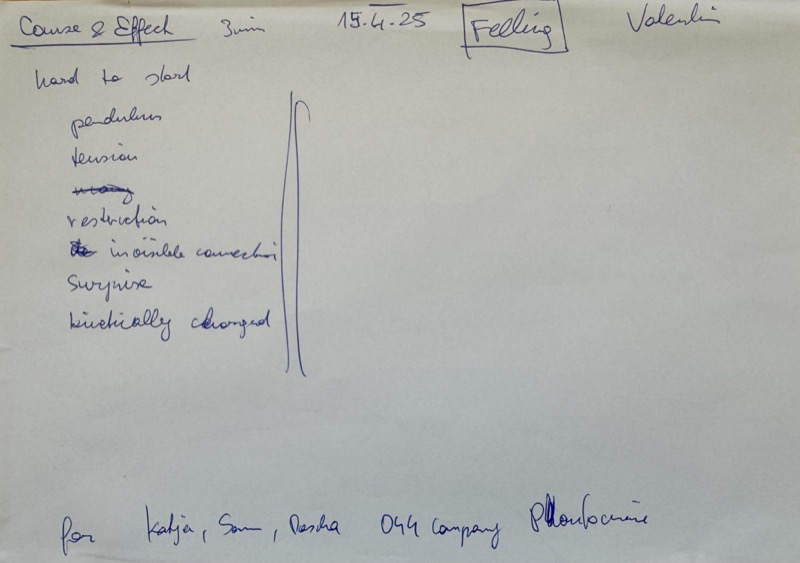 Cause & Effect 3min 15.4.25 Felling Valentin
hard to start
pendulum
tension
restriction
invisible connection
surprise
kinetically changed
for Katja, Sam, Dascha 044 company